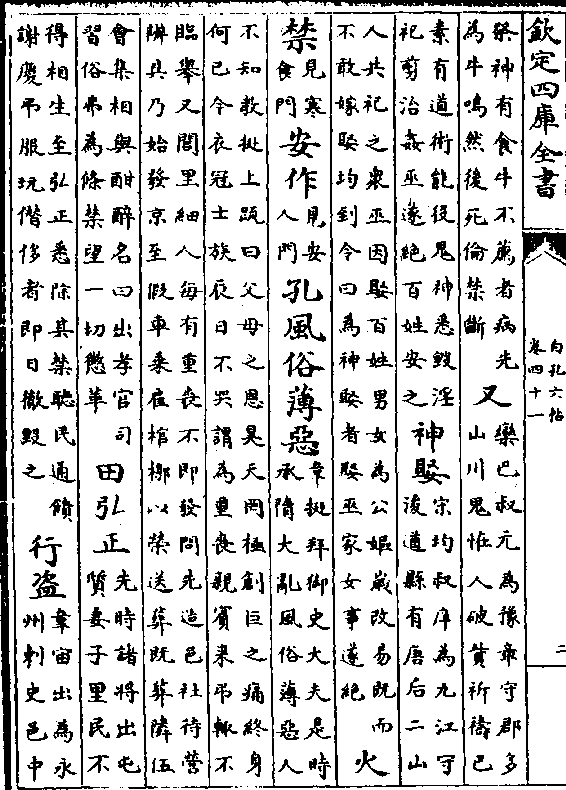 欽定四庫全書
白孔六帖
卷四十一
二
祭神有食牛不薦者病先
為牛鳴然後死倫禁斷
又
欒巴叔元為豫章守郡多
山川鬼怪人破貲祈禱巴
素有道術能役鬼神悉毀淫
祀翦治姦巫遂絶百姓安之
神娶
宋均叔庠為九江守
浚遒縣有唐后二山
人共祀之衆巫因娶百姓男女為公嫗嵗改易既而
不敢嫁娶均到令曰為神娶者娶巫家女事遂絶
火
禁
見寒
食門
安作
見安
人門
孔風俗薄惡
韋挺拜御史大夫是時
承隋大亂風俗薄惡人
不知教挺上䟽曰父母之恩昊天罔極創巨之痛終身
何已今衣冠士族辰日不哭謂為重喪親賓来弔輒不
臨舉又閭里細人每有重喪不即發問先造邑社待營
辦具乃始發哀至假車乘雇棺槨以榮送葬既葬隣伍
會集相與酣醉名曰出孝官司
習俗弗為條禁望一切懲革
田弘正
先時諸將出屯
質妻子里民不
得相往至弘正悉除其禁聴民通饋
謝慶弔服玩僭侈者即日徹毁之
行盗
韋宙出為永
州刺史邑中